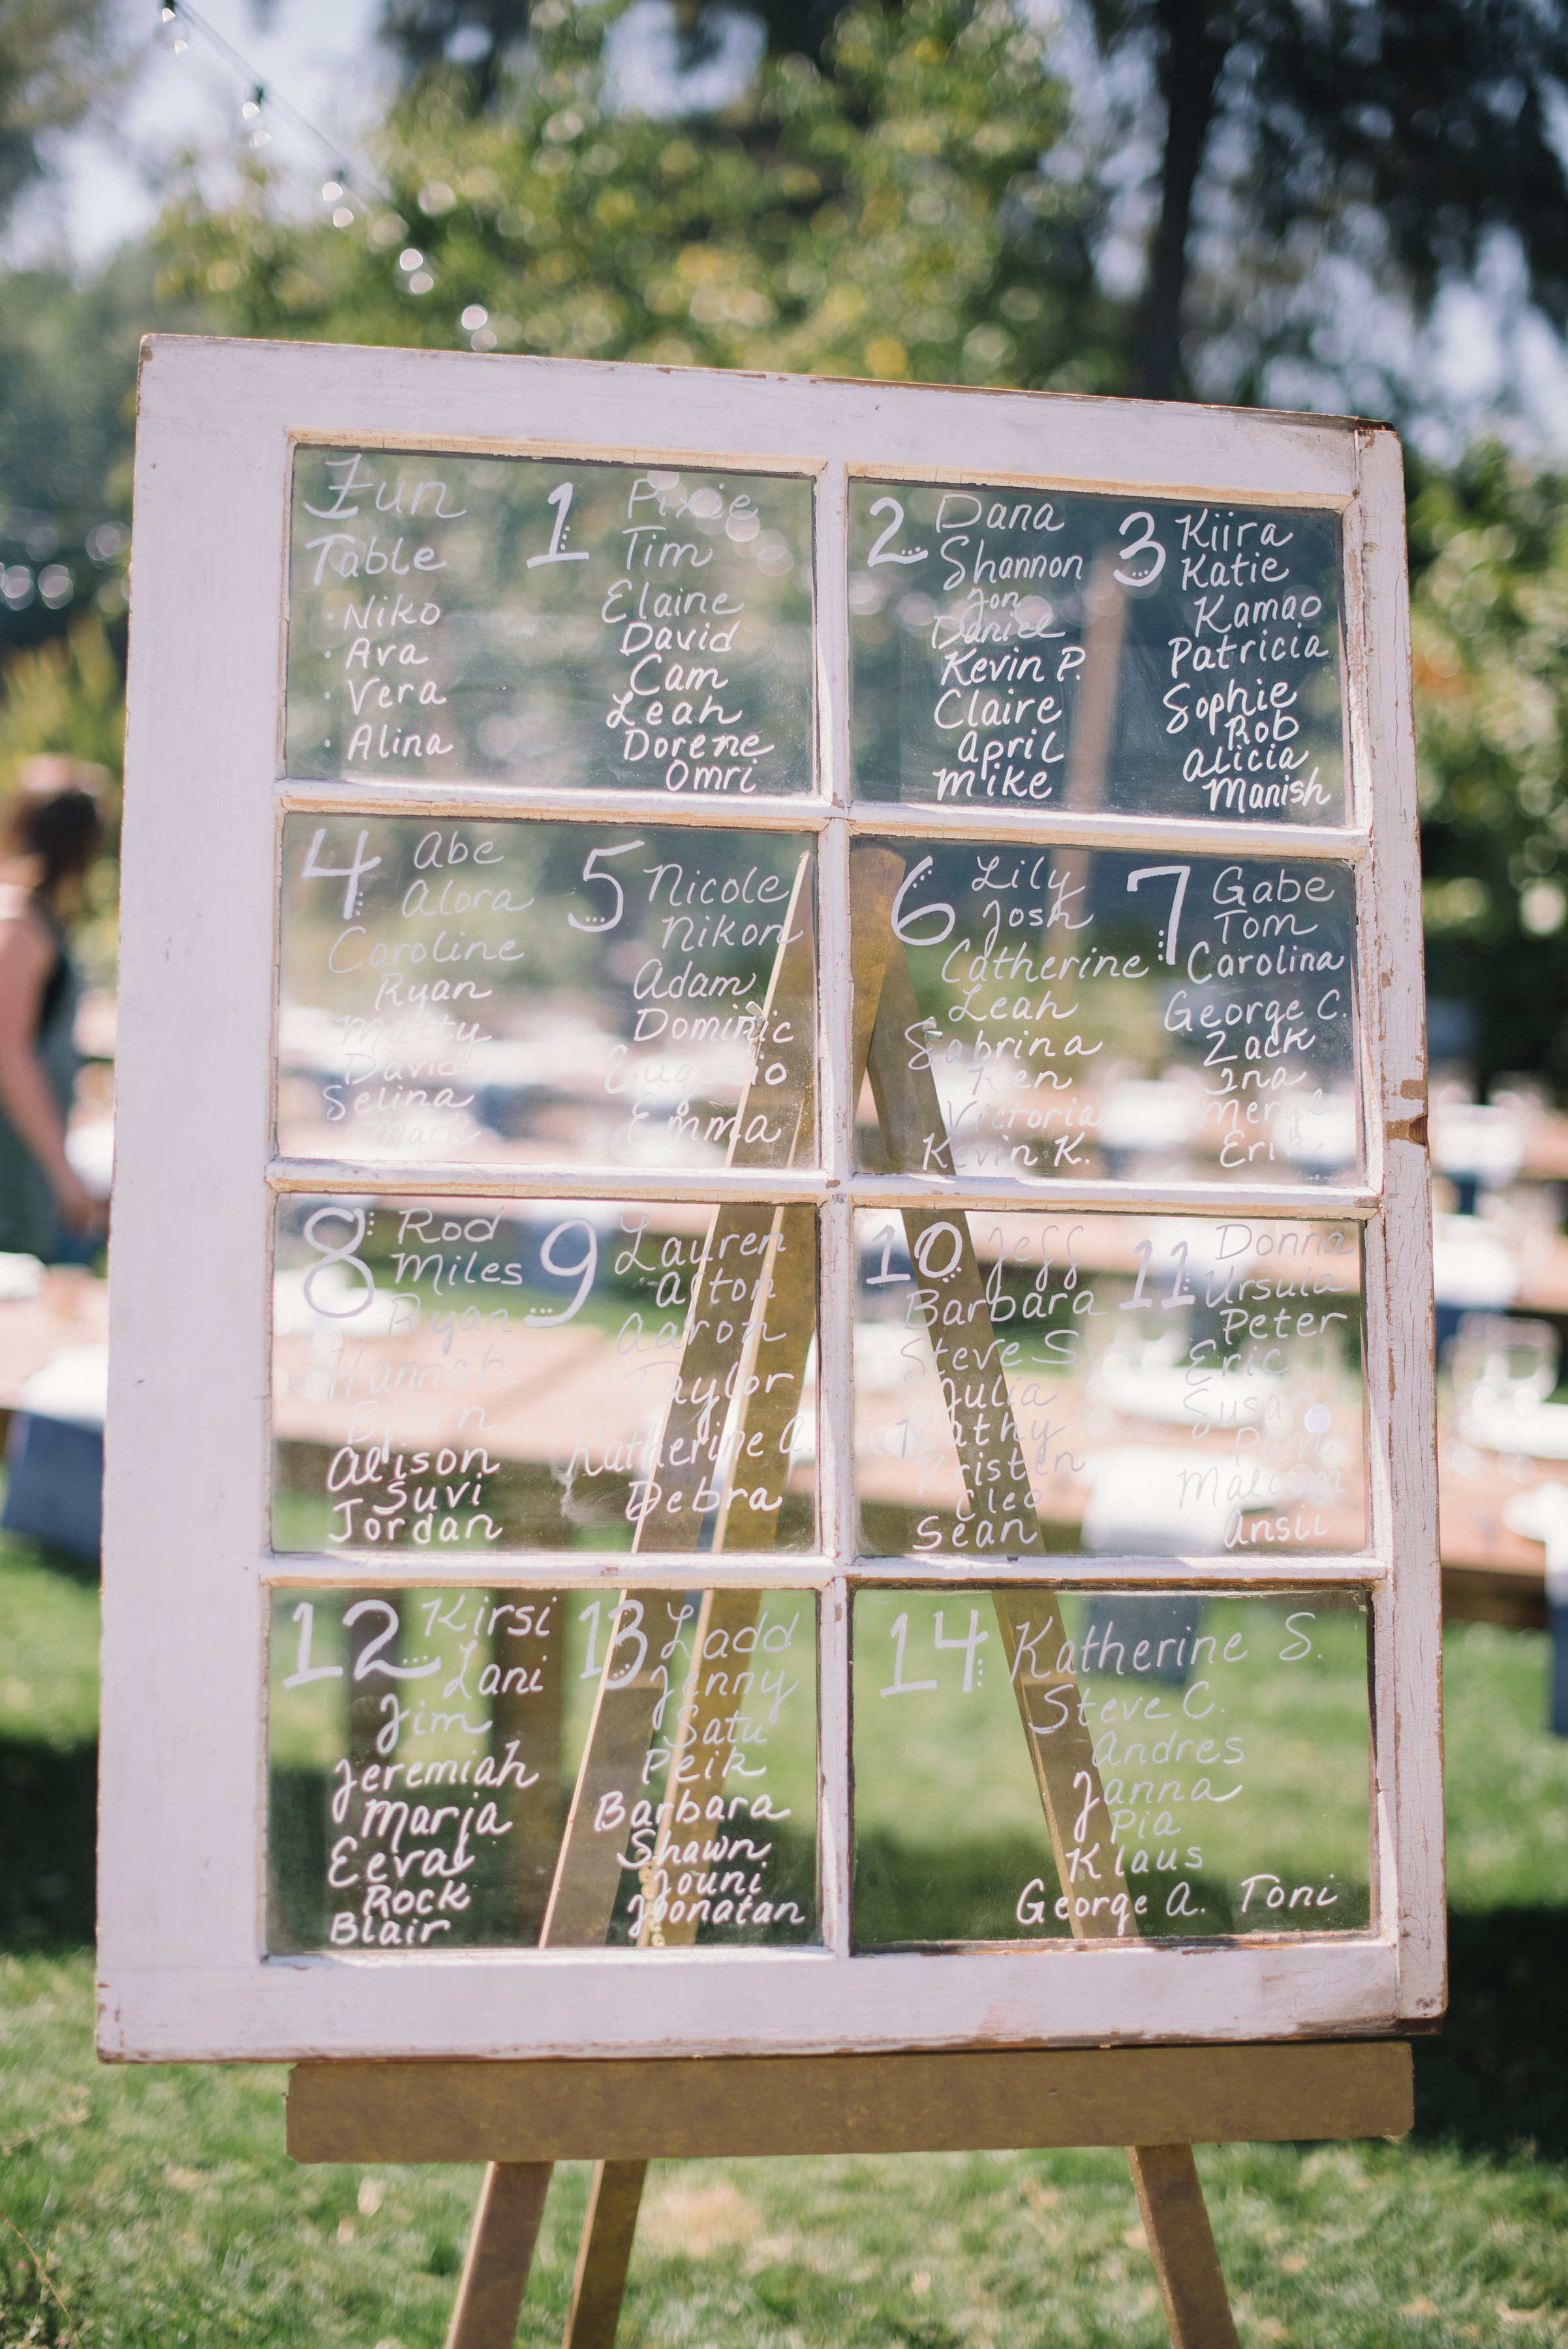 Fun
Table
· Niko
· Ava
· Vera
· Alina
1 Pixie
Tim
Elaine
David
Cam
Leah
Dorene
Omri
2 Dana
Shannon
Jon
Daniel
Kevin P.
Claire
April
Mike
3 Kiira
Katie
Kamao
Patricia
Sophie
Rob
Alicia
Manish
4 Abe
Alora
Caroline
Ryan
Matty
David
Selina
Mark
5 Nicole
Nikon
Adam
Dominic
Eugenio
Emma
6 Lily
Josh
Catherine
Leah
Sabrina
Ken
Victoria
Kevin K.
7 Gabe
Tom
Carolina
George C.
Zack
Ina
Meryl
Erik
8 Rod
Miles
Ryan
Hannah
Bjurn
Alison
Suvi
Jordan
9 Lauren
Alton
Aaron
Taylor
Katherine
Debra
10 Jeff
Barbara
Steve S.
Julia
Kathy
Kristen
Cleo
Sean
11 Donna
Ursula
Peter
Eric
Susan
Malcom
Anssi
12 Kirsi
Lani
Jim
Jeremiah
Marja
Eeva
Rock
Blair
13 Ladd
Jenny
Satu
Peik
Barbara
Shawn
Jouni
Joonatan
14 Katherine S.
Steve C.
Andres
Janna
Pia
Klaus
George A. Toni